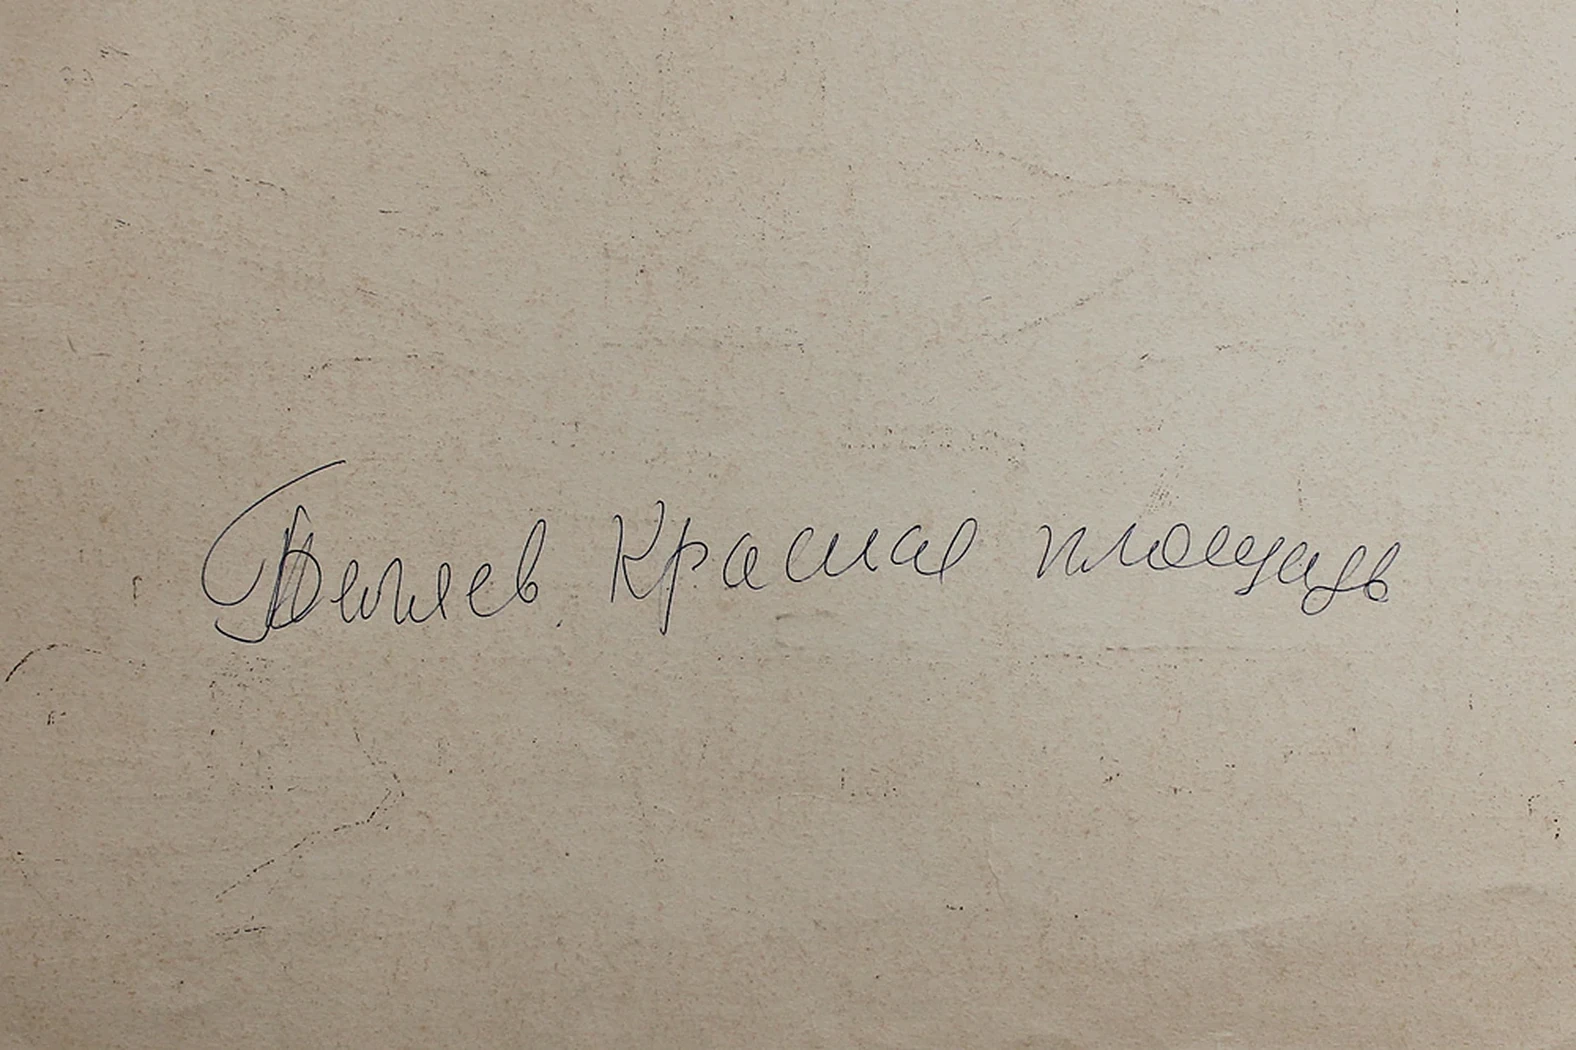 Беляев Красная площадь